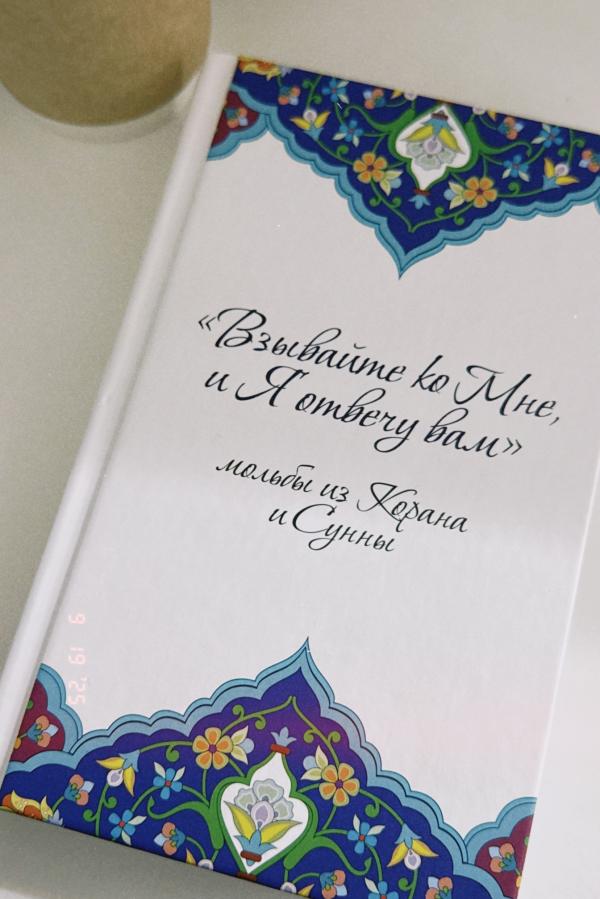 «Взывайте ко Мне,
и Я отвечу вам»
мольбы из Корана
и Сунны
9 19 '25